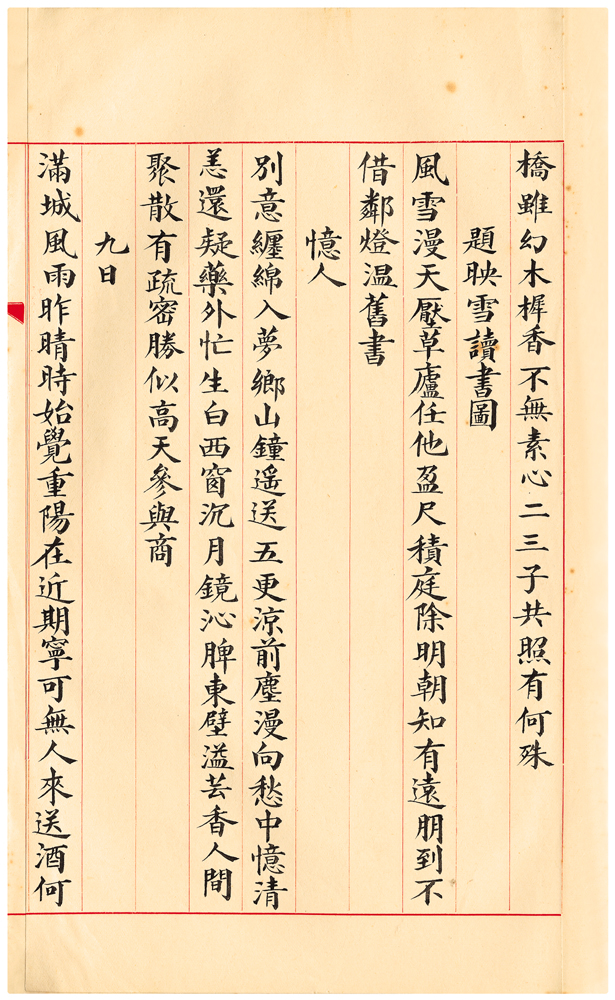 橋雖幻木樨香不無素心二三子共照有何殊
題映雪讀書圖
風雪漫天壓草廬任他盈尺積庭除明朝知有遠朋到不
借鄰燈温舊書
憶人
別意纏綿入夢鄉山鐘遥送五更涼前塵漫向愁中憶清
恙還疑藥外忙生白西窗沉月鏡沁脾東壁溢芸香人間
聚散有疏密勝似高天參與商
九日
滿城風雨昨晴時始覺重陽在近期寧可無人來送酒何